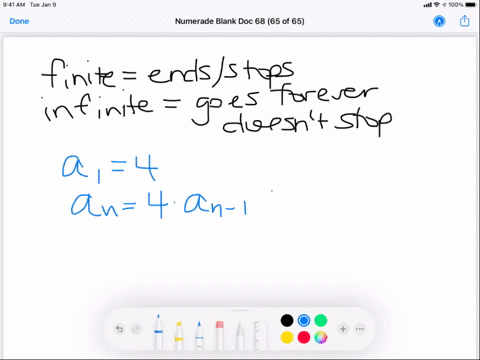 9:41 AM Tue Jan 9
100%
Done
Numerade Blank Doc 68 (65 of 65)
finite = ends/stops
infinite = goes forever
doesn't stop
a₁ = 4
aₙ = 4 · aₙ₋₁